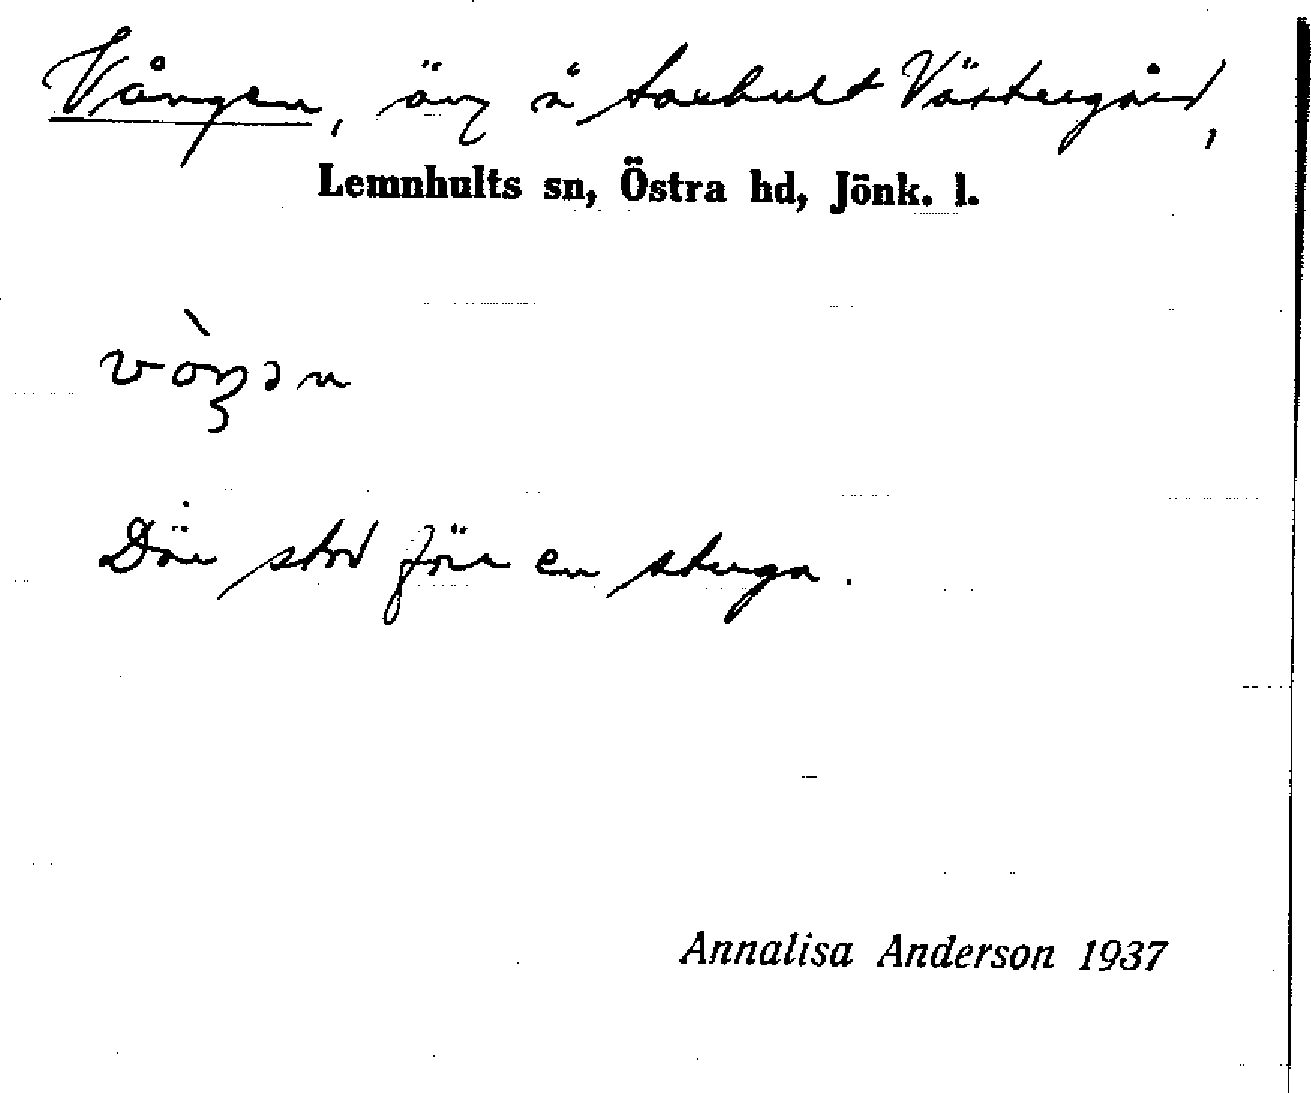 Vången, äng å Saxhult Västergård,
Lemnhults sn, Östra hd, Jönk. l.
Där stod förr en stuga.
Annalisa Anderson 1937